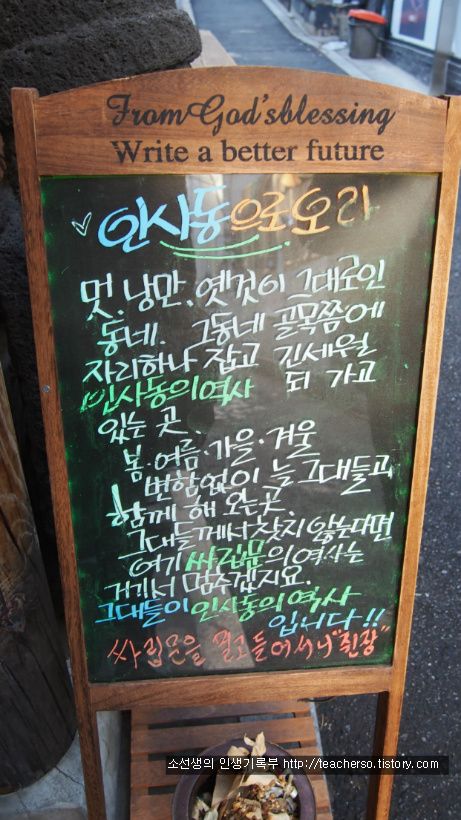 From God'sblessing
Write a better future
인사동으로 오라
멋. 낭만. 옛것이 그대로인
동네. 그동네 골목쯤에
자리하나 잡고 긴세월
인사동의 역사 되 가고
있는 곳.
봄·여름·가을·겨울
변함없이 늘 그대들과
함께 해 오는곳.
그대들께서 찾지 않는다면
여기 싸립문의 역사는
거기서 멈추겠지요.
그대들이 인사동의 역사
입니다!!
싸립문을 열고 들어서니 "된장"
소선생의 인생기록부 http://teacherso.tistory.com